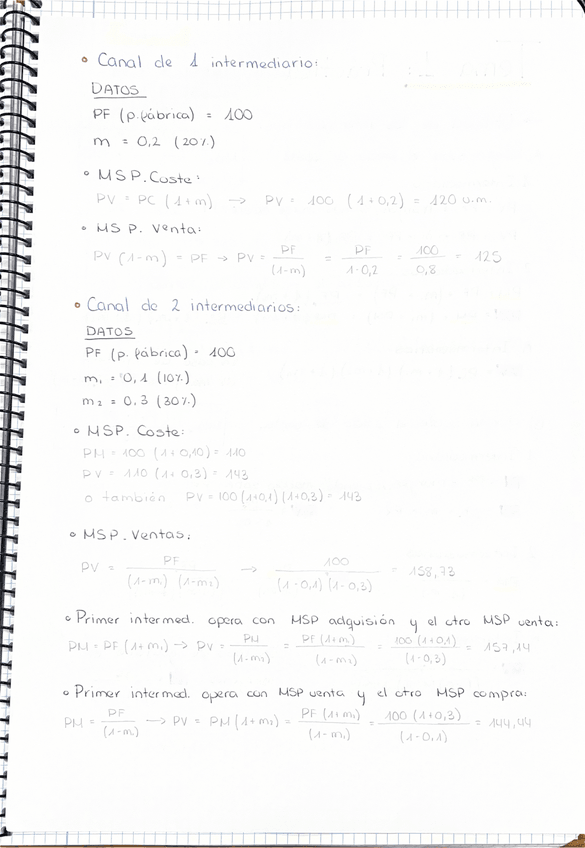 • Canal de 1 intermediario:
DATOS
PF (p. fábrica) = 100
m = 0,2 (20%)
• MSP. Coste:
PV = PC (1+m) → PV = 100 (1+0,2) = 120 u.m.
• MSP. Venta:
PV (1-m) = PF → PV = PF/(1-m) = PF/1-0,2 = 100/0,8 = 125
• Canal de 2 intermediarios:
DATOS
PF (p. fábrica) = 100
m₁ = 0,1 (10%)
m₂ = 0,3 (30%)
• MSP. Coste:
PM = 100 (1+0,10) = 110
PV = 110 (1+0,3) = 143
o también PV = 100 (1+0,1) (1+0,3) = 143
• MSP. Ventas:
PV = PF/(1-m₁) (1-m₂) → 100/(1-0,1) (1-0,3) = 158,73
• Primer intermed. opera con MSP adquisión y el otro MSP venta:
PM = PF (1+m₁) → PV = PM/(1-m₂) = PF (1+m₁)/(1-m₂) = 100 (1+0,1)/(1-0,3) = 157,14
• Primer intermed. opera con MSP venta y el otro MSP compra:
PM = PF/(1-m₁) → PV = PM (1+m₂) = PF (1+m₂)/(1-m₁) = 100 (1+0,3)/(1-0,1) = 144,44